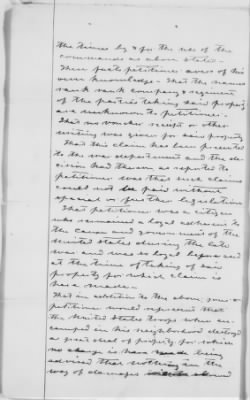 the times by & for the use of the
command as above stated.
These facts petitioner avers of his
own knowledge. That the names
rank rank company & regiment
of the parties taking said property
are unknown to petitioner.
That no voucher receipt or other
writing was given for said property
That this claim has been presented
to the war department and the de
cision had thereon as reported to
petitioner was that such claim
could not be paid without
special or further legislation
That petitioner was a citizen
who remained a loyal adherent to
the cause and government of the
United States during the late
war and was so loyal before and
at the time of taking of said
property for which claim is
here made.
That in addition to the above your
petitioner would represent that
the United States troops when en
camped in his neighborhood destroyed
a great deal of property for which
no charge is here made being
advised that nothing in the
way of damages should